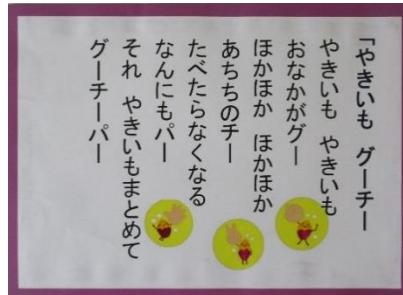 「やきいも　グーチー
やきいも　やきいも
おなかがグー
ほかほか　ほかほか
あちちのチー
たべたらなくなる
なんにもパー
それ　やきいもまとめて
グーチーパー